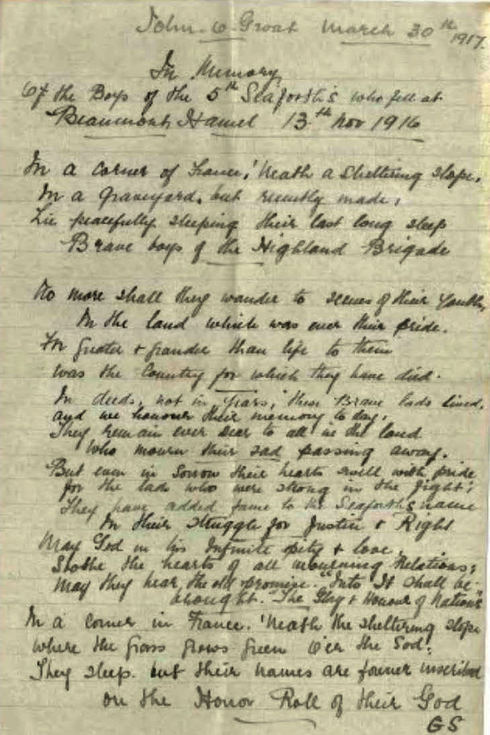 John-o-Groat March 30th 1917.
In Memory
Of the Boys of the 5th Seaforth's who fell at
Beaumont Hamel 13th Nov 1916
In a corner of France, 'Neath a sheltering slope,
In a graveyard, but recently made;
Lie peacefully sleeping their last long sleep
Brave boys of the Highland Brigade
No more shall they wander to scenes of their Youth,
In the land which was ever their pride.
For greater & grander than life to them
was the Country for which they have died.
In deeds, not in Years, these Brave lads lived,
and we honour their memory to day,
They remain ever dear to all in the land
Who mourn their sad passing away.
But even in sorrow their hearts swell with pride
for the lads who were strong in the fight;
They have added fame to the Seaforths name
In their struggle for Justice & Right
May God in his Infinite pity & love,
Soothe the hearts of all mourning Relations;
May they hear the old promise. "Into It shall be
brought. "The Glory & Honour of Nations"
In a corner in France. 'Neath the sheltering slope
where the Grass grows Green O'er the Sod;
They sleep. but their names are forever inscribed
on the Honor Roll of their God
GS